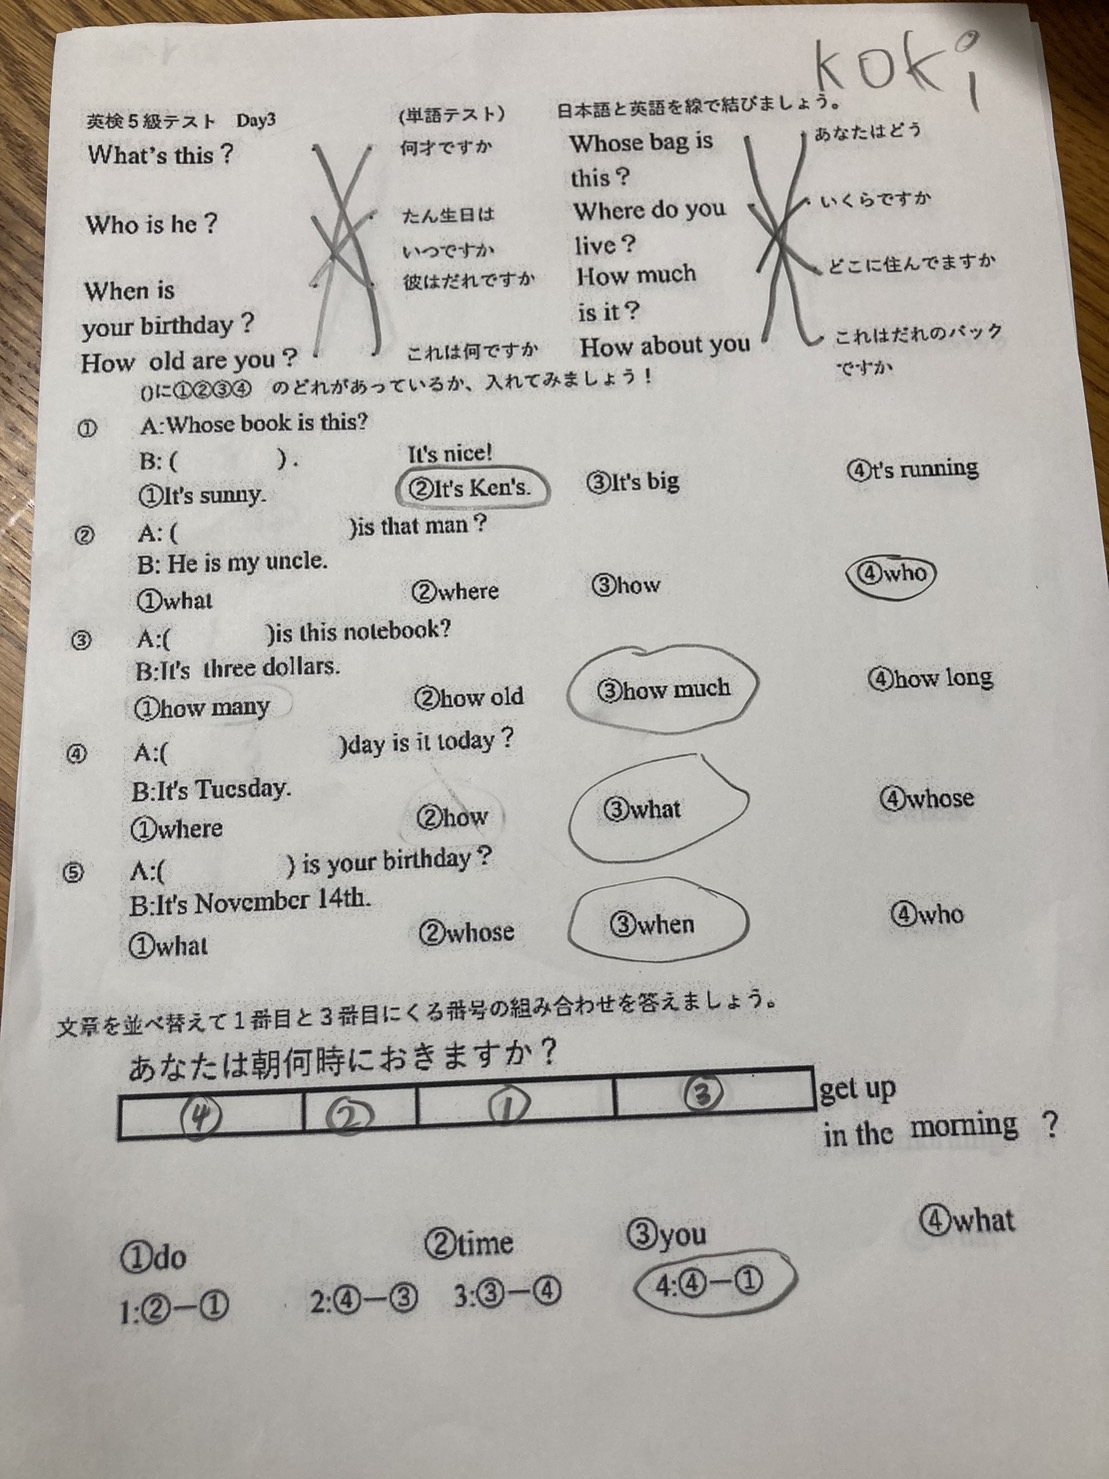 koki
英検５級テスト Day3 (単語テスト) 日本語と英語を線で結びましょう。
What's this？ 何才ですか Whose bag is あなたはどう
this？
Who is he？ たん生日は Where do you いくらですか
いつですか live？
When is 彼はだれですか How much どこに住んでますか
your birthday？ is it？
How old are you？ これは何ですか How about you これはだれのバック
ですか
()に①②③④ のどれがあっているか、入れてみましょう！
① A:Whose book is this?
B: ( ) . It's nice!
①It's sunny. ②It's Ken's. ③It's big ④t's running
② A: ( )is that man？
B: He is my uncle.
①what ②where ③how ④who
③ A:( )is this notebook?
B:It's three dollars.
①how many ②how old ③how much ④how long
④ A:( )day is it today？
B:It's Tuesday.
①where ②how ③what ④whose
⑤ A:( ) is your birthday？
B:It's November 14th.
①what ②whose ③when ④who
文章を並べ替えて１番目と３番目にくる番号の組み合わせを答えましょう。
あなたは朝何時におきますか？
④ ② ① ③ get up
in the morning ？
①do ②time ③you ④what
1:②ー① 2:④ー③ 3:③ー④ 4:④ー①